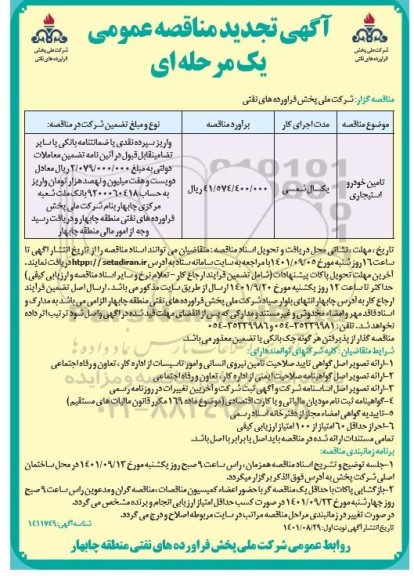 آگهی تجدید مناقصه عمومی
یک مرحله ای
شرکت ملی پخش
فرآورده های نفتی
شرکت ملی پخش
فرآورده های نفتی
مناقصه گزار: شرکت ملی پخش فراورده های نفتی
موضوع مناقصه
مدت اجرای کار
برآورد مناقصه
نوع و مبلغ تضمین شرکت در مناقصه:
تامین خودرو
استیجاری
یکسال شمسی
۴۱/۵۷۴/۴۰۰/۰۰۰ ریال
واریز سپرده نقدی یا ضمانتنامه بانکی یا سایر
تضامین قابل قبول در آئین نامه تضمین معاملات
دولتی به مبلغ ۲/۰۷۹/۰۰۰/۰۰۰ ریال معادل
دویست و هفت میلیون و نهصد هزار تومان واریز
مرکزی چابهار بنام شرکت ملی پخش
فراورده های نفتی منطقه چابهار و دریافت رسید
وجه از امور مالی منطقه چابهار
تاریخ، مهلت، نشانی محل دریافت و تحویل اسناد مناقصه: متقاضیان می توانند اسناد مناقصه را از تاریخ انتشار آگهی تا
ساعت ۱۶ روز شنبه مورخ ۱۴۰۱/۰۹/۰۵ با مراجعه به سایت سامانه ستاد به آدرس setadiran.ir دریافت نمایند.
آخرین مهلت تحویل پاکات پیشنهادات (شامل تضمین فرآیند ارجاع کار - اعلام نرخ و سایر اسناد مناقصه و ارزیابی کیفی)
حداکثر تا ساعت ۱۲ روز یکشنبه مورخ ۱۴۰۱/۹/۲۰ ارسال از طریق سایت مذکور می باشد. ارسال اصل تضمین فرآیند
ارجاع کار به آدرس چابهار انتهای بلوار صیاد شرکت ملی پخش فراورده های نفتی منطقه چابهار الزامی می باشد به مدارک و
اسناد فاقد مهر و امضاء مخدوش و غیر مستند و مدارکی که پس از انقضای مهلت قید شده در آگهی واصل شود ترتیب اثر داده
نخواهد شد. تلفن: ۰۵۴-۳۵۳۳۹۹۸۱ و ۰۵۴-۳۵۳۳۹۹۸۶
مناقصه گذار از پذیرفتن هر گونه چک بانکی یا تضمین معذور می باشد.
شرایط متقاضیان: کلیه شرکتهای توانمند دارای:
۱-ارائه تصویر اصل گواهی تایید صلاحیت تامین نیروی انسانی و امور تاسیسات از اداره کار، تعاون و رفاه اجتماعی
۲-ارائه تصویر اصل گواهینامه صلاحیت ایمنی از اداره کار، تعاون و رفاه اجتماعی
۳-ارائه تصویر اصل اساسنامه شرکت و آگهی ثبت شرکت و آخرین تغییرات در روزنامه رسمی
۴-گواهینامه ثبت نام مودیان مالیاتی و یا کارت اقتصادی (موضوع ماده ۱۶۹ مکرر قانون مالیات های مستقیم)
۵-تاییدیه گواهی امضاء مجاز از دفترخانه اسناد رسمی
۶-احراز حداقل ۶۰ امتیاز از ۱۰۰ امتیاز ارزیابی کیفی
تمامی مستندات ارائه شده در مناقصه باید اصل یا برابر با اصل باشد.
برنامه زمانبندی مناقصه:
۱-جلسه توضیح و تشریح اسناد مناقصه همزمان، راس ساعت ۹ صبح روز یکشنبه مورخ ۱۴۰۱/۰۹/۱۳ در محل ساختمان
اصلی شرکت پخش به آدرس فوق الذکر برگزار میگردد.
۲-بازگشایی پاکات با حداقل یک مناقصه گر با حضور اعضاء کمیسیون مناقصات، مناقصه گران و مدعوین راس ساعت ۹ صبح
روز چهارشنبه مورخ ۱۴۰۱/۰۹/۲۳ در صورت کسب حداقل امتیاز ارزیابی انجام و برنده مشخص می گردد.
در صورت تغییر در زمانبندی مراحل مناقصه مراتب در سایت مربوطه اصلاح و درج می گردد.
تاریخ انتشار آگهی نوبت اول: ۱۴۰۱/۰۸/۲۹
شناسه آگهی: ۱۴۱۱۷۴۹
روابط عمومی شرکت ملی پخش فراورده های نفتی منطقه چابهار